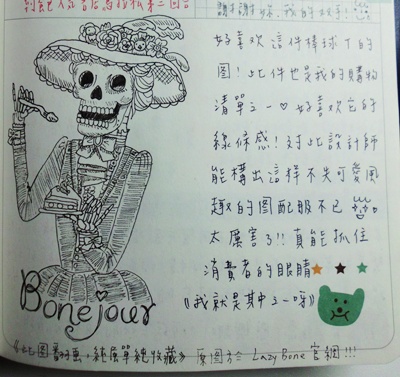 好喜歡這件棒球T的
圖！此件也是我的購物
清單之一♡好喜歡它的
線條感！對此設計師
能構出這樣不失可愛風
趣的圖配服不已
太厲害了!!真能抓住
消費者的眼睛★ ★ ★
《我就是其中之一呀》
Bonejour
《此圖翻畫，純屬單純收藏》原圖於 Lazy Bone 官網!!!